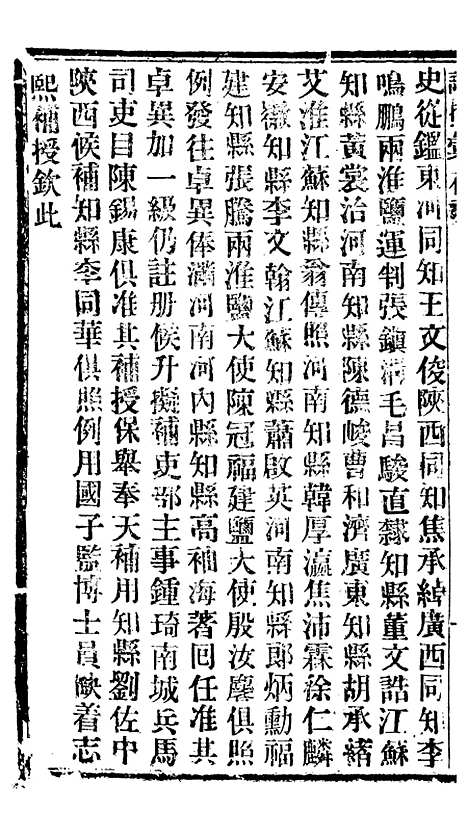 史從鑑東河同知王文俊陝西同知焦承綍廣西同知李
鳴鵬兩淮鹽運判張鎮毛昌駿直隸知縣董文誥江蘇
知縣黃裳治河南知縣陳德峻曹和濟廣東知縣胡承緒
艾淮江蘇知縣翁傳照河南知縣韓厚瀛焦沛霖徐仁麟
安徽知縣李文翰江蘇知縣蕭啟英河南知縣郎炳勳福
建知縣張騰兩淮鹽大使陳冠福建鹽大使殷汝塵俱照
例發往卓異俸滿河南河內縣知縣高袖海著回任准其
卓異加一級仍註册候升擬補吏部主事鍾琦南城兵馬
司吏目陳錫康俱准其補授保舉奉天補用知縣劉佐中
陝西候補知縣李同華俱照例用國子監博士員缺着志
熙補授欽此